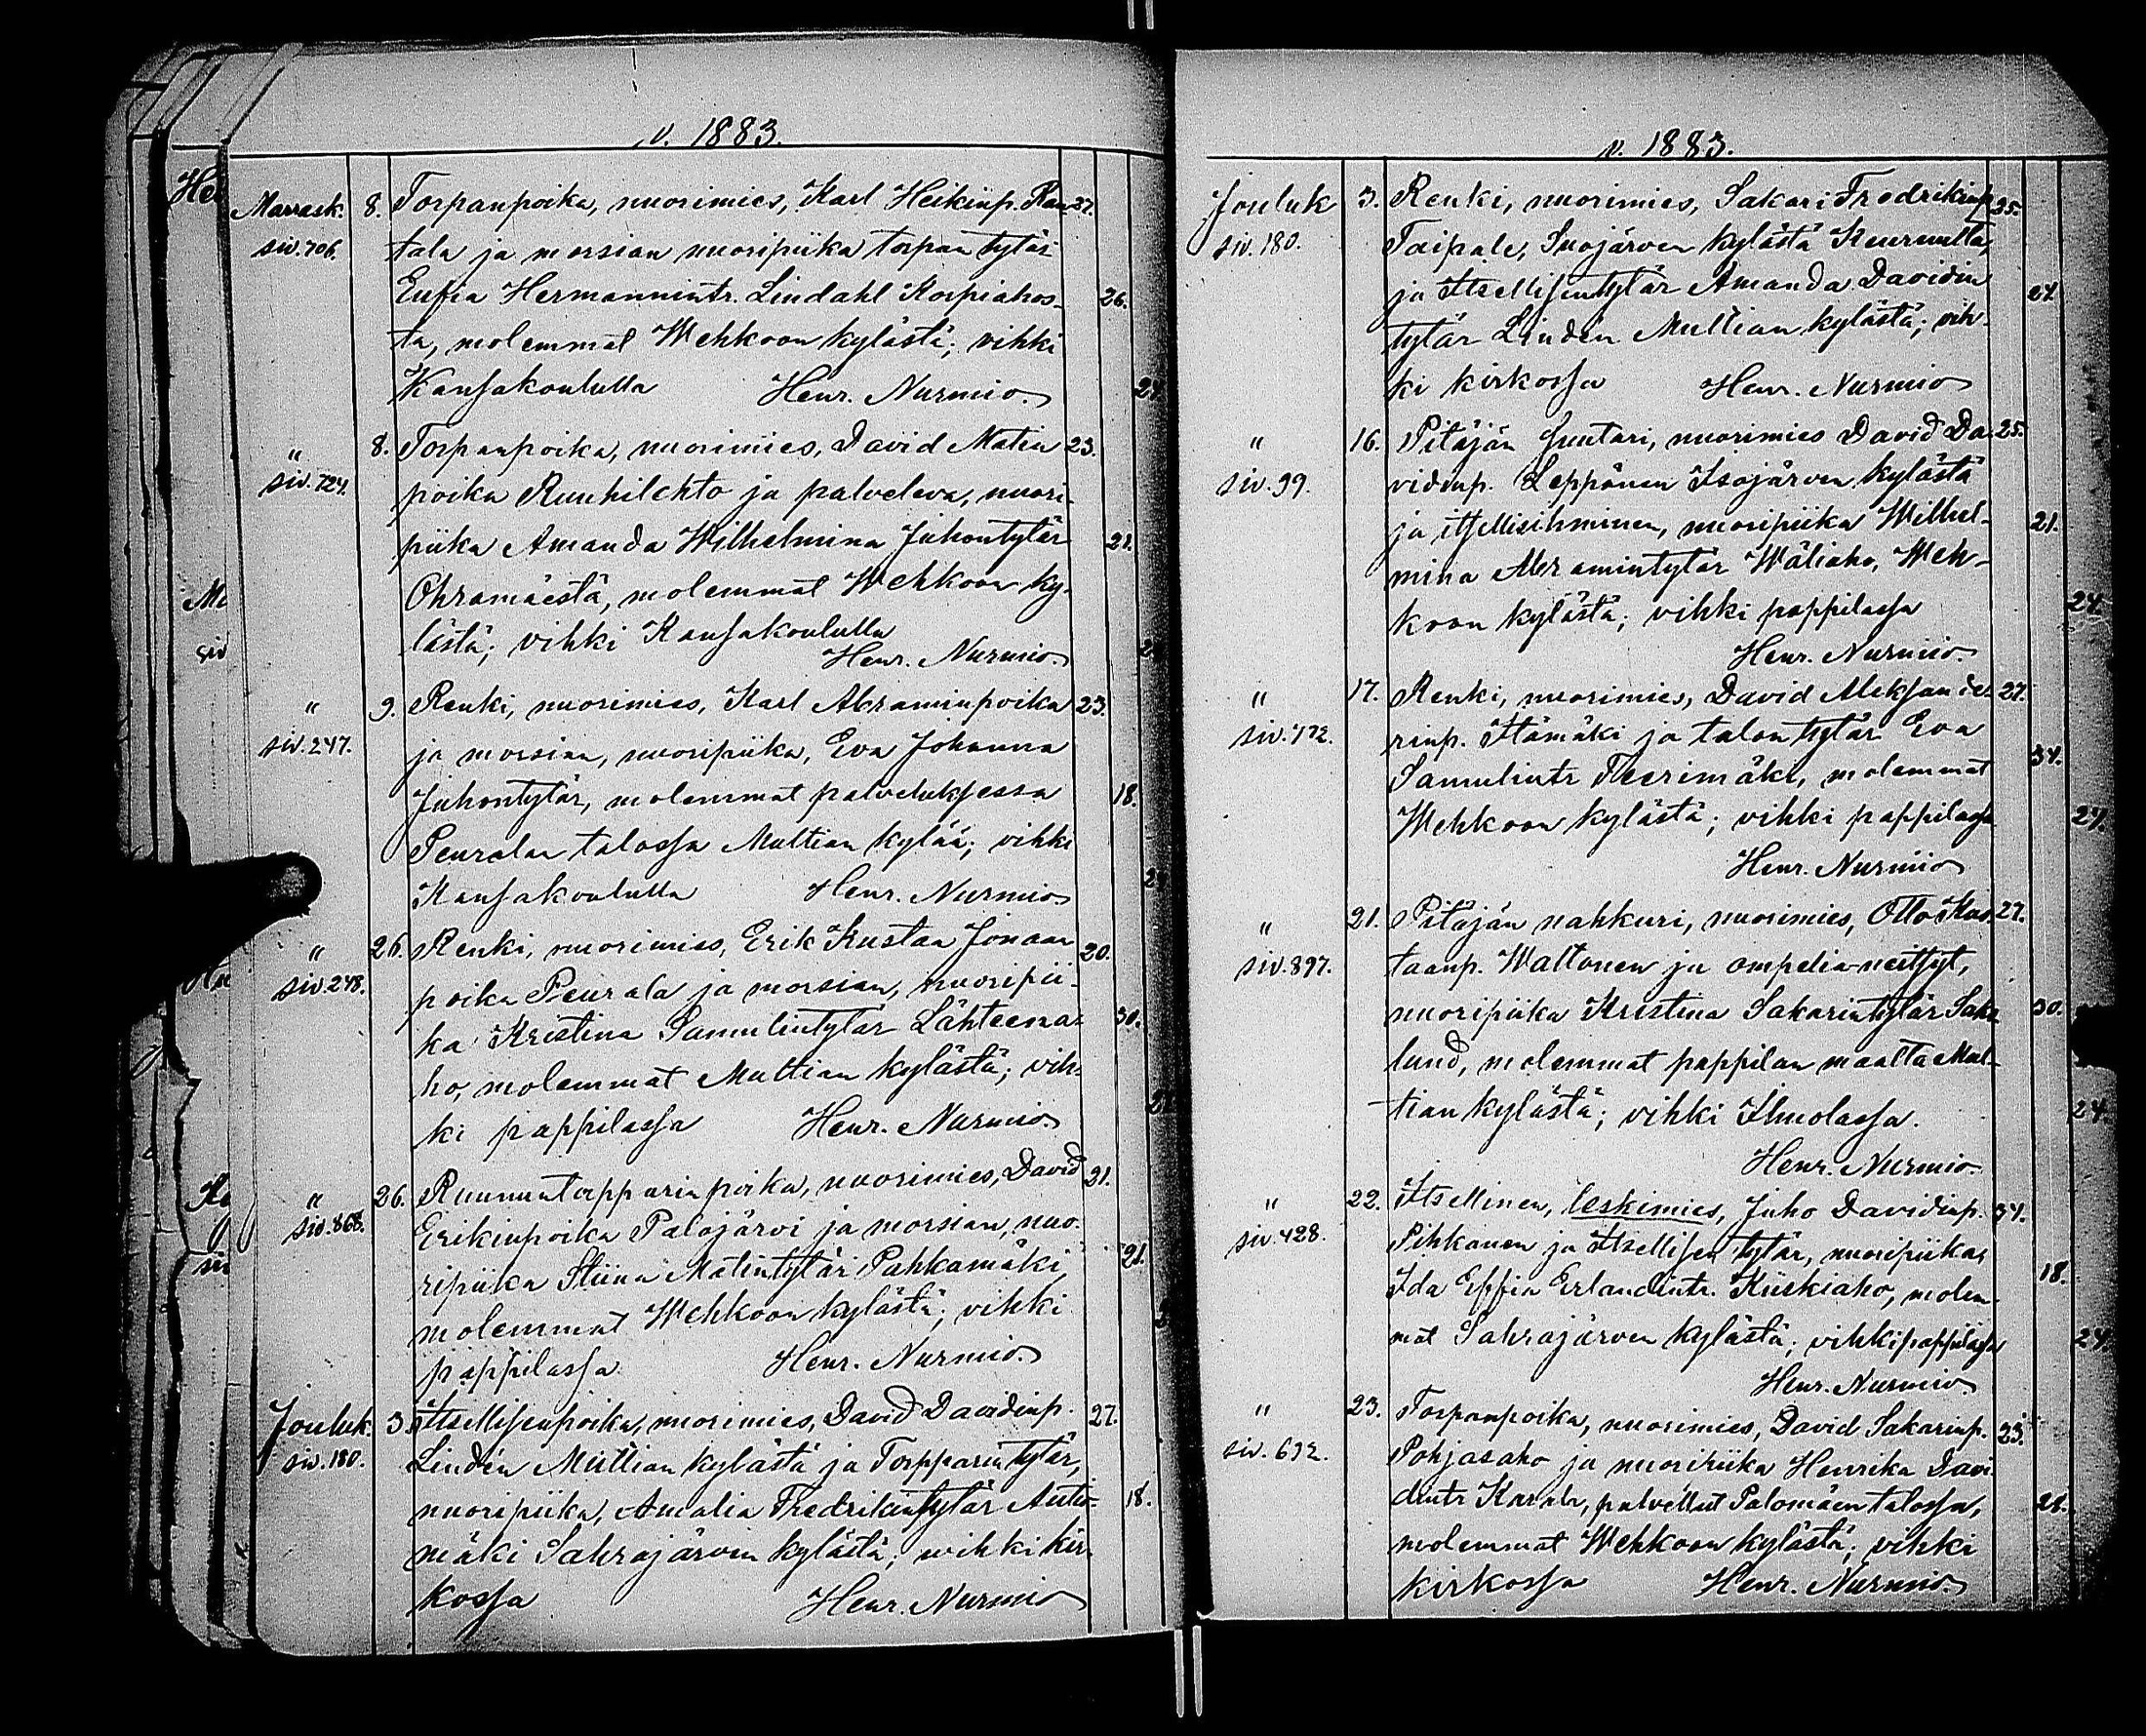 v. 1883.
Marrask. 8. Torpanpoika, nuorimies, Karl Heikinp. Ran- 27.
siv. 706. tala ja morsian nuoripiika torpan tytär
Eufia Hermannintr. Lindahl Korpiahos- 26.
ta, molemmat Wehkoon kylästä; vihki
Kansakoululla Henr. Nurmio. 24
" 8. Torpanpoika, nuorimies, David Matin 23.
siv. 724. poika Ruuhilehto ja palveleva, nuori-
piika Amanda Wilhelmina Juhontytär 21.
Ohramäestä, molemmat Wehkoon ky-
lästä; vihki Kansakoululla
Henr. Nurmio.
" 9. Renki, nuorimies, Karl Abraminpoika 23.
siv. 247. ja morsian, nuoripiika, Eva Johanna
Juhontytär, molemmat palveluksessa 18.
Peuralan talossa Multian kylää; vihki
Kansakoululla Henr. Nurmio
" 26. Renki, nuorimies, Erik Kustaa Jonaan 20.
siv. 248. poika Peurala ja morsian, nuoripii-
ka Kristina Samulintytär Lähteena- 30.
ho, molemmat Multian kylästä; vih-
ki pappilassa Henr. Nurmio.
" 26. Ruununtorpparin poika, nuorimies, David 21.
siv. 868. Erikinpoika Palojärvi ja morsian, nuo-
ripiika Stiina Matintytär Pahkamäki, 21.
molemmat Wehkoon kylästä; vihki
pappilassa. Henr. Nurmio.
Jouluk. 3. Itsellisenpoika, nuorimies, David Davidinp. 27.
siv. 180. Lindén Multian kylästä ja Torpparin tytär,
nuoripiika, Amalia Fredrikintytär Autio- 18.
mäki Sahrajärven kylästä; wihki kir-
kossa Henr. Nurmio
v. 1883.
Jouluk 3. Renki, nuorimies, Sakari Fredrikinp. 25.
siv. 180. Taipale, Suojärven kylästä Keuruulla,
ja Itsellisentytär Amanda Davidin 24.
tytär Lindén Multian kylästä; vih-
ki kirkossa Henr. Nurmio
" 16. Pitäjän suutari, nuorimies David Da- 25.
siv. 99. vidinp. Leppänen Isojärven kylästä
ja itsellisihminen, nuoripiika Wilhel- 21.
mina Abramintytär Wäliaho, Weh-
koon kylästä; vihki pappilassa 24.
Henr. Nurmio.
" 17. Renki, nuorimies, David Aleksande- 27.
siv. 772. rinp. Itämäki ja talon tytär Eva
Samulintr Teerimäki, molemmat 34.
Wehkoon kylästä; vihki pappilassa 24.
Henr. Nurmio
" 21. Pitäjän nahkuri, nuorimies, Otto Kus- 27.
siv. 897. taanp. Waltonen ja ompelia-neitsyt,
nuoripiika Kristina Sakarintytär Sake- 30.
lund, molemmat pappilan maalta Mul-
tian kylästä; vihki Ilmolassa. 24.
Henr. Nurmio
" 22. Itsellinen, leskimies, Juho Davidinp. 34.
siv. 428. Pihkanen ja Itsellisen tytär, nuoripiika,
Ida Effia Erlandintr. Kiiskiaho, molem- 18.
mat Sahrajärven kylästä; vihki pappilassa 24.
Henr. Nurmio.
" 23. Torpanpoika, nuorimies, David Sakarinp. 23.
siv. 692. Pohjasaho ja nuoripiika Henrika Davi-
dintr palvellut Palomäen talossa, 26.
molemmat Wehkoon kylästä; vihki
kirkossa Henr. Nurmio.